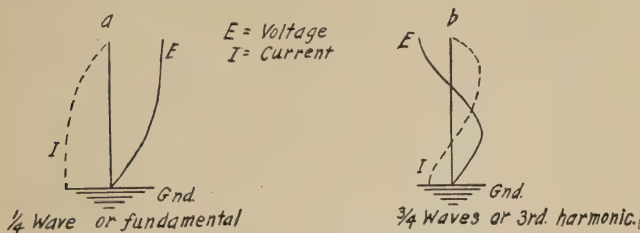 a
E = Voltage
I = Current
b
E
E
I
I
Gnd.
Gnd.
1/4 Wave or fundamental
3/4 Waves or 3rd. harmonic.